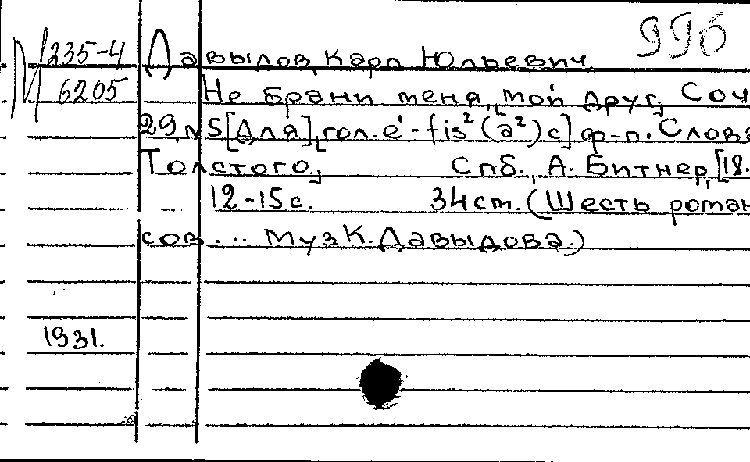 996
М 235-4 Давыдов, Карл Юльевич
6205 Не брани меня, мой друг, Соч
29, № 5 [Для] гол. e¹-fis² (a²) с] ф-п. Слова
Толстого, Спб., А. Битнер, [18.
12-15 с. 34 см. (Шесть роман
сов ... Муз К. Давыдова.)
1931.